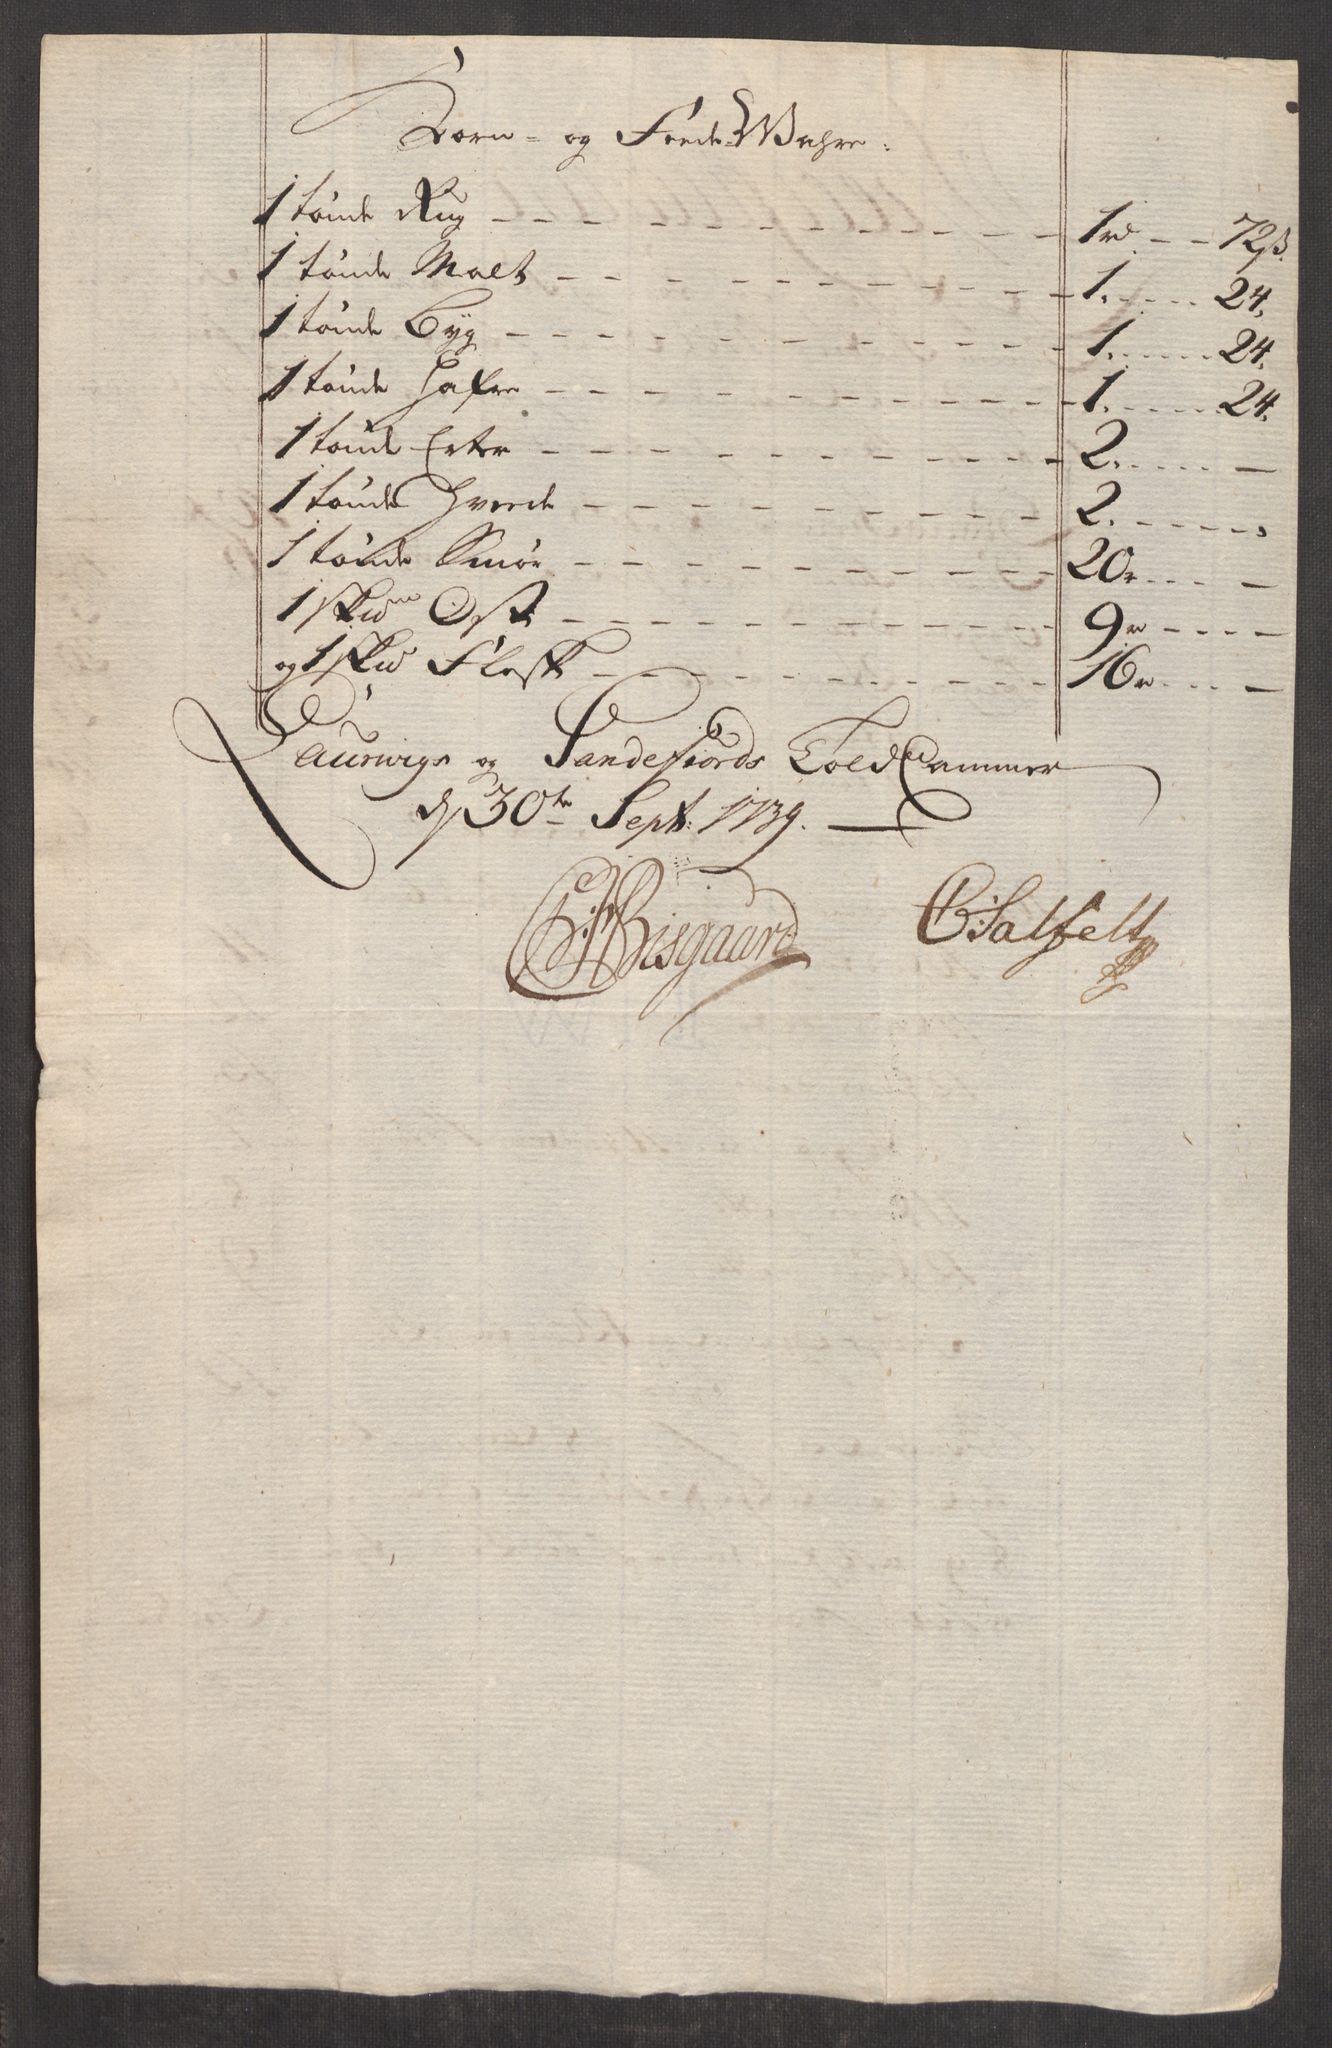 Korn- og Feede-Wahre:
1 tönde Rug - - - 1 rd - - 72 ß.
1 tönde Malt - - - 1. - - 24.
1 tönde Byg - - - 1. - - 24.
1 tönde Hafre - - - 1. - - 24.
1 tönde Erter - - - 2. - - -
1 tönde Hvede - - - 2. - - -
1 tönde Smör - - - 20 - - -
1 sk℔ Ost - - - 9 - - -
og 1 sk℔ Flesk - - - 16 - - -
Laurwigs og Sandefiords Told Cammer
d 30te Sept: 1739.
Bisgaard
C Salfelt